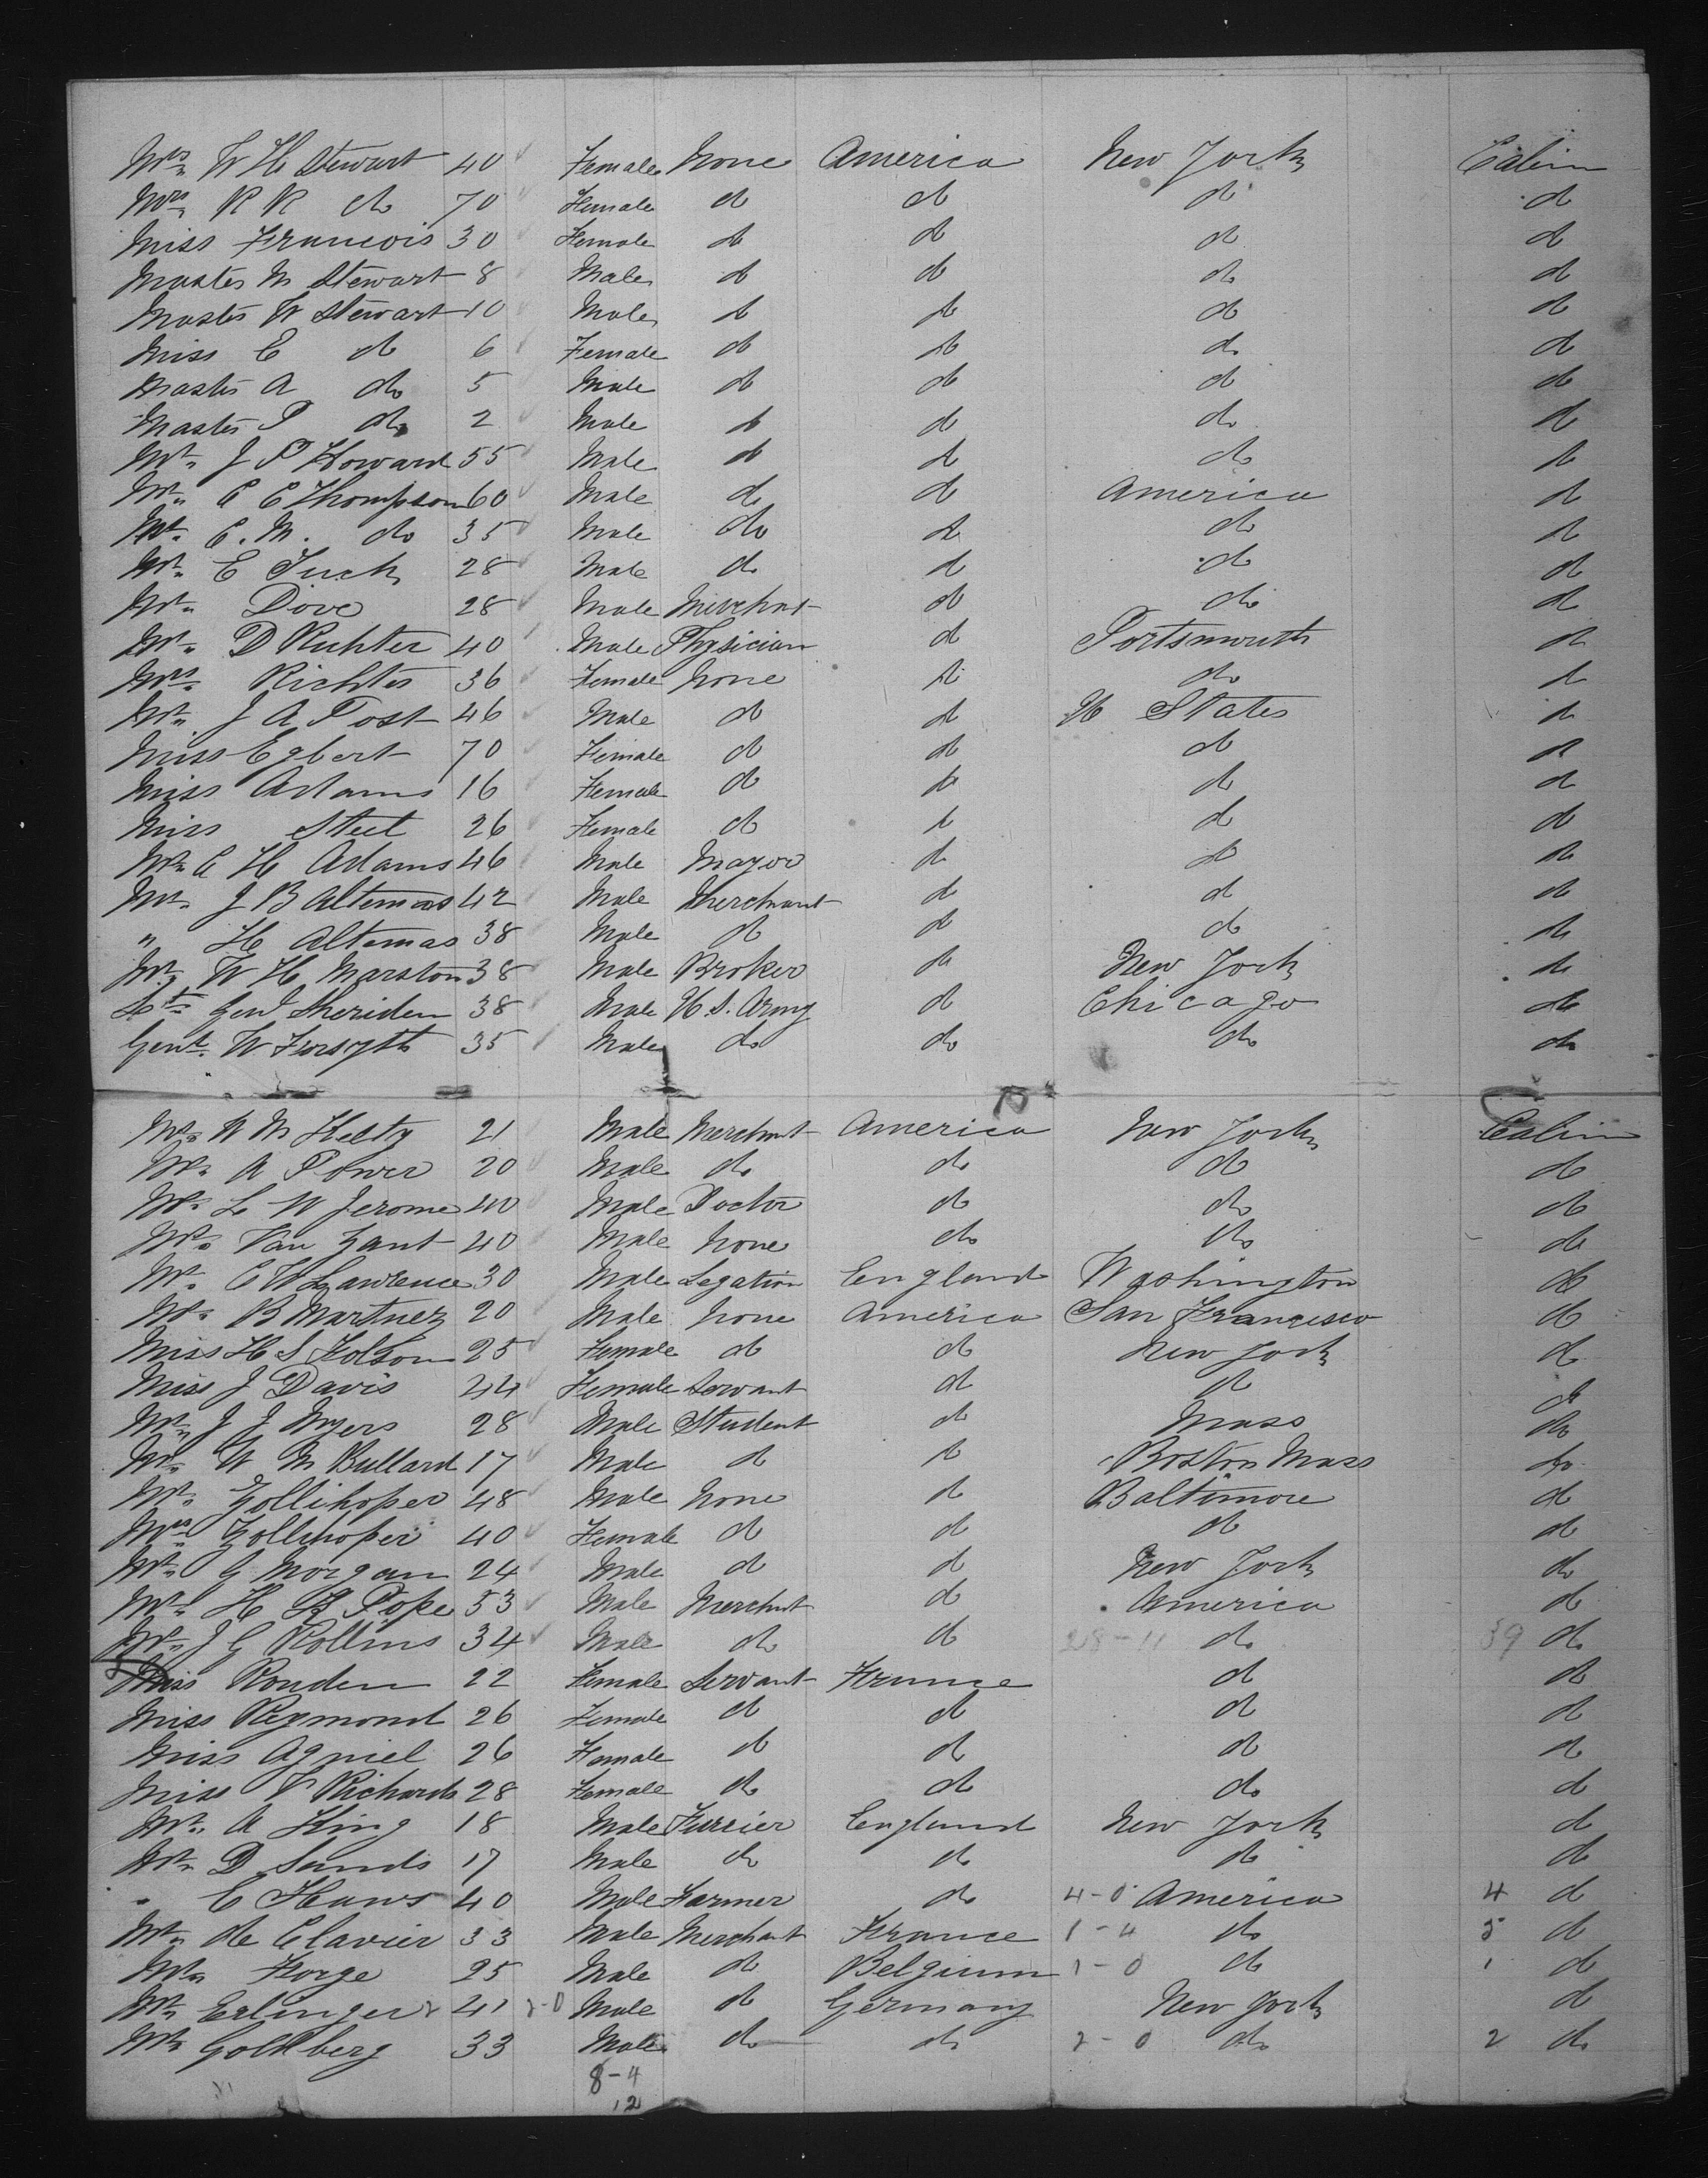 Mrs W H Stewart 40 Female None America New York Cabin
Mrs R R do 70 Female do do do do
Miss Francois 30 Female do do do do
Master M Stewart 8 Male do do do do
Master W Stewart 10 Male do do do do
Miss E do 6 Female do do do do
Master A do 5 Male do do do do
Master P do 2 Male do do do do
Mr J P Howard 55 Male do do do do
Mr C E Thompson 60 Male do do America do
Mr C. M. do 35 Male do do do do
Mr E Tuck 28 Male do do do do
Mr Dove 28 Male Merchant do do do
Mr D Richter 40 Male Physician do Portsmouth do
Mrs Richter 36 Female None do do do
Mr J A Post 46 Male do do U States do
Miss Egbert 70 Female do do do do
Miss Adams 16 Female do do do do
Miss Steel 26 Female do do do do
Mr C H Adams 46 Male Mayor do do do
Mr J B Altemas 42 Male Merchant do do do
" H Altemas 38 Male do do do do
Mr W H Marston 38 Male Broker do New York do
Lt Genl Sheriden 38 Male U.S. Army do Chicago do
Genl W Forsyth 35 Male do do do do
Mr W M Kelty 21 Male Merchant America New York Cabin
Mr A Power 20 Male do do do do
Mr L W Jerome 40 Male Doctor do do do
Mr Van Zant 40 Male None do do do
Mr C W Lawrence 30 Male Legation England Washington do
Mr B Martnez 20 Male None America San Francisco do
Miss H S Folsom 25 Female do do New York do
Miss J Davis 24 Female Servant do do do
Mr J J Myers 28 Male Student do Mass do
Mr W M Bullard 17 Male do do Boston Mass do
Mr Zollikoper 48 Male None do Baltimore do
Mrs Zollikoper 40 Female do do do do
Mr G Morgan 24 Male do do New York do
Mr H Pope 53 Male Merchant do America do
Mr J G Rollins 34 Male do do 28-11 do 39 do
Miss Rouden 22 Female Servant France do do
Miss Reymond 26 Female do do do do
Miss Agniel 26 Female do do do do
Miss V Richards 28 Female do do do do
Mr A King 18 Male Furrier England New York do
Mr D Sands 17 Male do do do do
" C Haws 40 Male Farmer do 4-0 America 4 do
Mr de Clavier 33 Male Merchant France 1-4 do 5 do
Mr Forge 25 Male do Belgium 1-0 do 1 do
Mr Erlinger 2 41 2-0 Male do Germany New York do
Mr Goldberg 33 Male do do 2-0 do 2 do
8-4
12